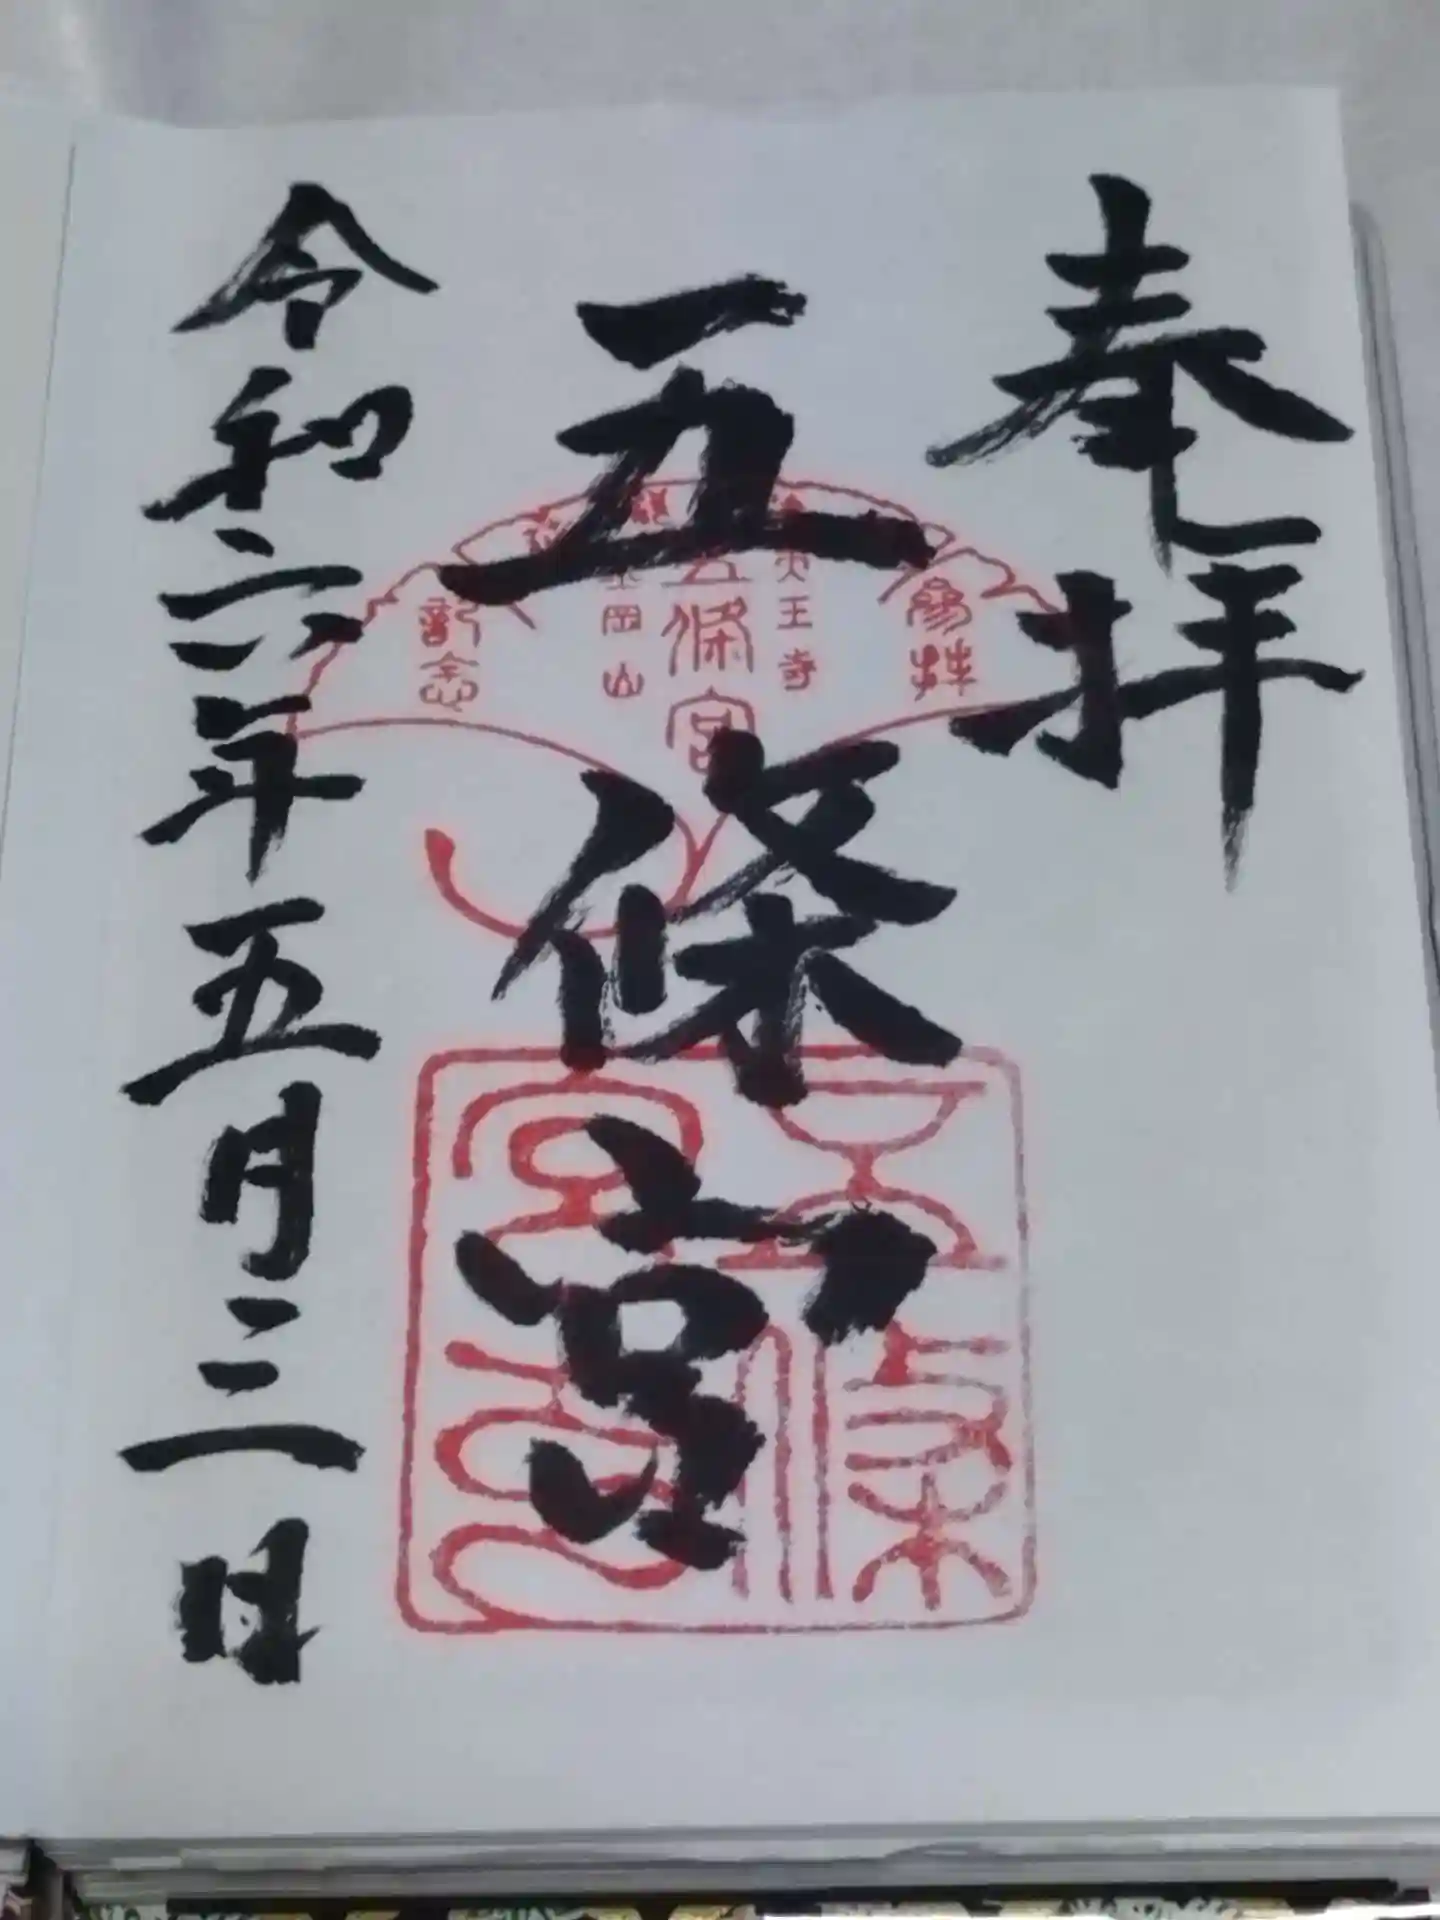 奉拝
五條宮
令和六年五月三日
参拝
天王寺
五條宮
岡山
記念
五條
宮